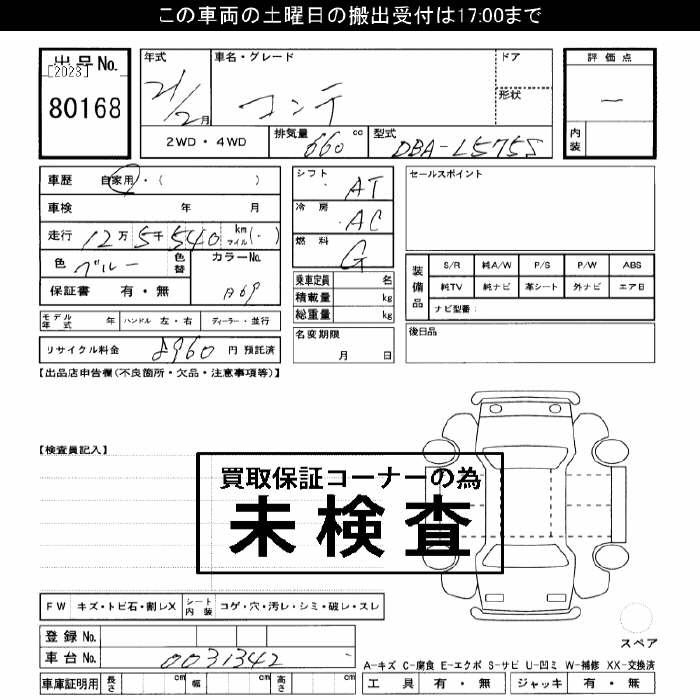 この車両の土曜日の搬出受付は17:00まで
出品No.
[2023]
80168
年式
21/2月
車名・グレード
コンテ
ドア
形状
2WD・4WD
排気量 660 cc
型式 DBA-L575S
評価点
―
内装
車歴 自家用・( )
車検 年 月
走行 12万5千540 km マイル(・)
色 ブルー 色替
カラーNo.
保証書 有・無
モデル年式 年 ハンドル 左・右 ディーラー・並行
リサイクル料金 8960 円 預託済
シフト AT
冷房 AC
燃料 G
乗車定員 名
積載量 kg
総重量 kg
名変期限
月 日
セールスポイント
装備品
S/R 純A/W P/S P/W ABS
純TV 純ナビ 革シート 外ナビ エアB
ナビ型番:
後日品
【出品店申告欄(不良箇所・欠品・注意事項等)】
【検査員記入】
買取保証コーナーの為
未検査
FW キズ・トビ石・割レX
シート内装 コゲ・穴・汚レ・シミ・破レ・スレ
登録No.
車台No. 0031342
車庫証明用 長さ cm 幅 cm 高さ cm
スペア
A-キズ C-腐食 E-エクボ S-サビ U-凹ミ W-補修 XX-交換済
工具 有・無 ジャッキ 有・無